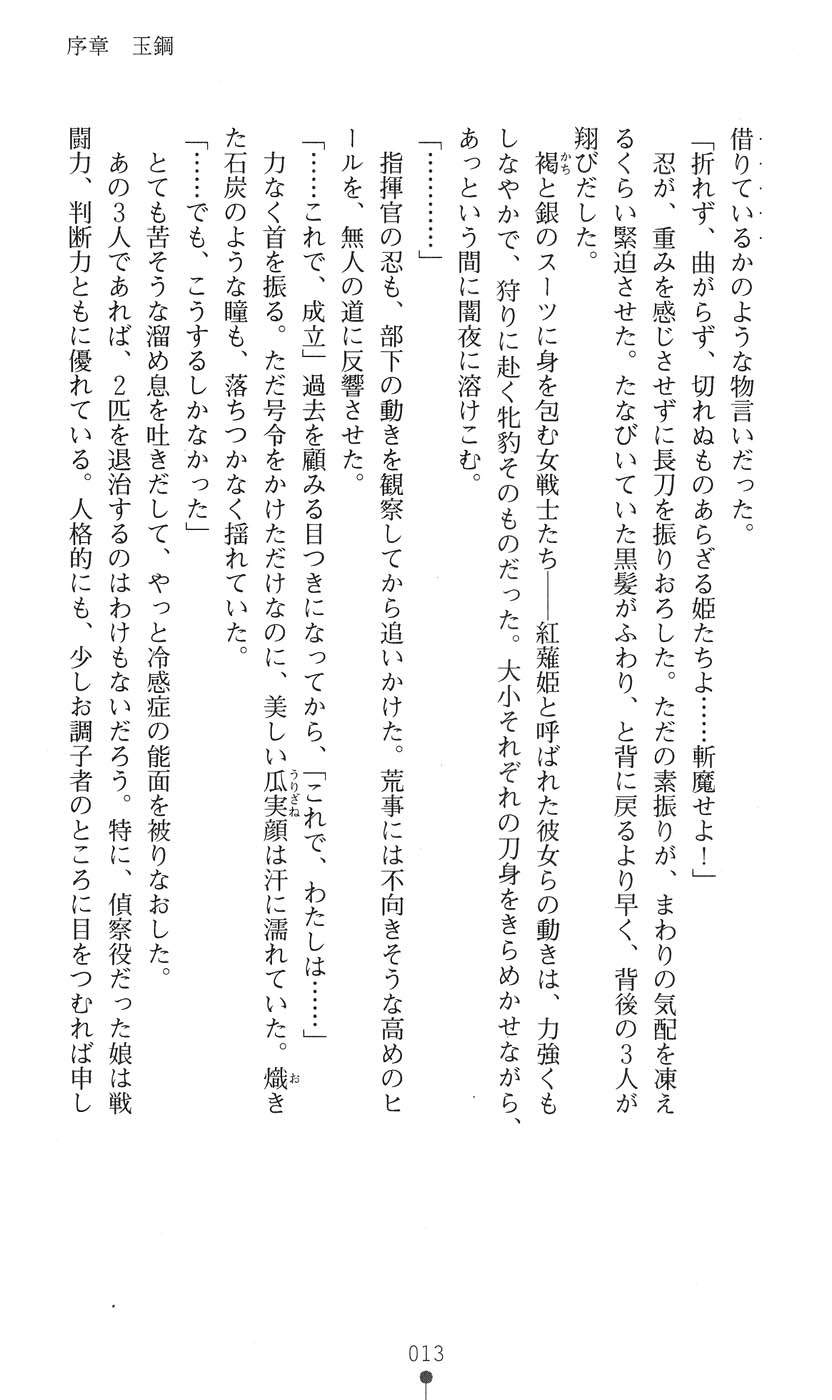 序章　玉鋼
借りているかのような物言いだった。
「折れず、曲がらず、切れぬものあらざる姫たちよ……斬魔せよ！」
忍が、重みを感じさせずに長刀を振りおろした。ただの素振りが、まわりの気配を凍え
るくらい緊迫させた。たなびいていた黒髪がふわり、と背に戻るより早く、背後の3人が
翔びだした。
褐と銀のスーツに身を包む女戦士たち――紅薙姫と呼ばれた彼女らの動きは、力強くも
しなやかで、狩りに赴く牝豹そのものだった。大小それぞれの刀身をきらめかせながら、
あっという間に闇夜に溶けこむ。
「…………」
指揮官の忍も、部下の動きを観察してから追いかけた。荒事には不向きそうな高めのヒ
ールを、無人の道に反響させた。
「……これで、成立」過去を顧みる目つきになってから、「これで、わたしは……」
力なく首を振る。ただ号令をかけただけなのに、美しい瓜実顔は汗に濡れていた。熾き
た石炭のような瞳も、落ちつかなく揺れていた。
「……でも、こうするしかなかった」
とても苦そうな溜め息を吐きだして、やっと冷感症の能面を被りなおした。
あの3人であれば、2匹を退治するのはわけもないだろう。特に、偵察役だった娘は戦
闘力、判断力ともに優れている。人格的にも、少しお調子者のところに目をつむれば申し
013